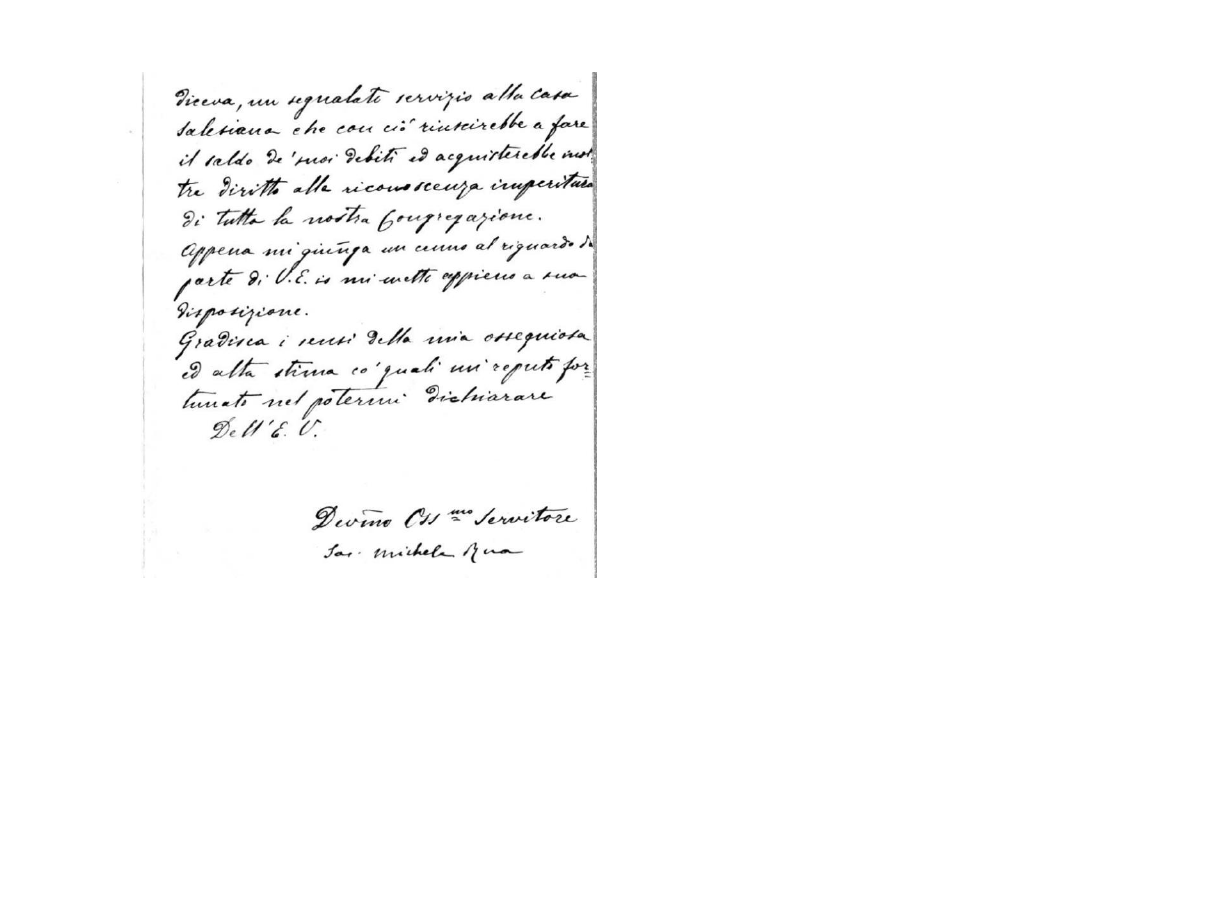 diceva, un segnalato servizio alla Casa
Salesiana che con ciò riuscirebbe a fare
il saldo de' suoi debiti ed acquisterebbe inol=
tre diritto alla riconoscenza imperitura
di tutta la nostra Congregazione.
Appena mi giunga un cenno al riguardo da
parte di V.E. io mi metto appieno a sua
disposizione.
Gradisca i sensi della mia ossequiosa
ed alta stima co' quali mi reputo for=
tunato nel potermi dichiarare
Dell'E. V.
Devmo Oss mo Servitore
Sac. Michele Rua